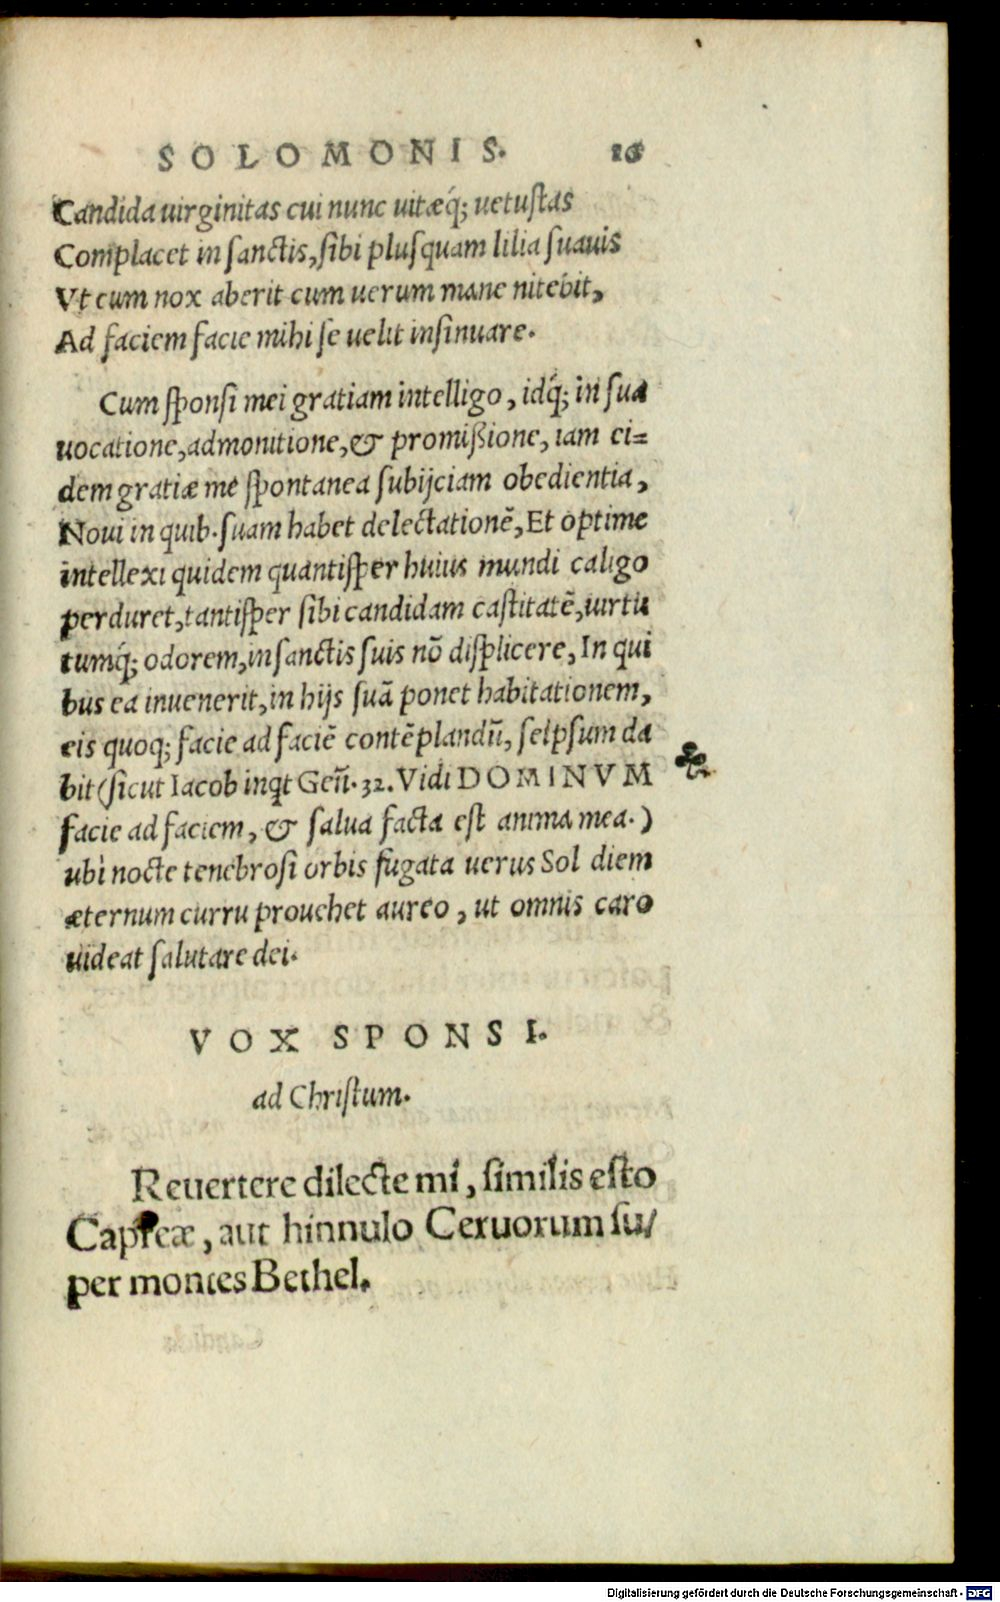 SOLOMONIS. 26
Candida uirginitas cui nunc uitæq́; uetuſtas
Complacet in ſanctis, ſibi pluſquam lilia ſuauis
Vt cum nox aberit cum uerum mane nitebit,
Ad faciem facie mihi ſe uelit inſinuare.
Cum ſponſi mei gratiam intelligo, idq́; in ſua
uocatione, admonitione, & promißione, iam ei=
dem gratiæ me ſpontanea ſubijciam obedientia,
Noui in quib. ſuam habet delectationẽ, Et optime
intellexi quidem quantiſper huius mundi caligo
perduret, tantiſper ſibi candidam caſtitatẽ, uirtu
tumq́; odorem, in ſanctis ſuis nõ diſplicere, In qui
bus ea inuenerit, in hijs ſuã ponet habitationem,
eis quoq; facie ad faciẽ contẽplandũ, ſeipſum da
bit (ſicut Iacob inqt Geñ. 32. Vidi DOMINVM
facie ad faciem, & ſalua facta eſt anima mea.)
ubi nocte tenebroſi orbis fugata uerus Sol diem
æternum curru prouehet aureo, ut omnis caro
uideat ſalutare dei.
VOX SPONSI.
ad Chriſtum.
Reuertere dilecte mi, ſimilis eſto
Capreæ, aut hinnulo Ceruorum ſu/
per montes Bethel.
Digitalisierung gefördert durch die Deutsche Forschungsgemeinschaft - DFG